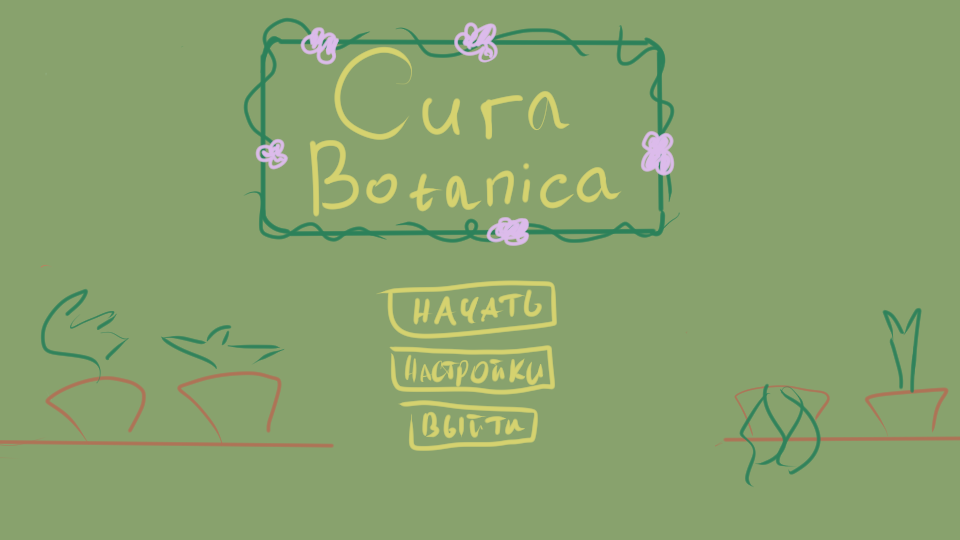 Cura
Botanica
НАЧАТЬ
НАСТРОЙКИ
ВЫЙТИ